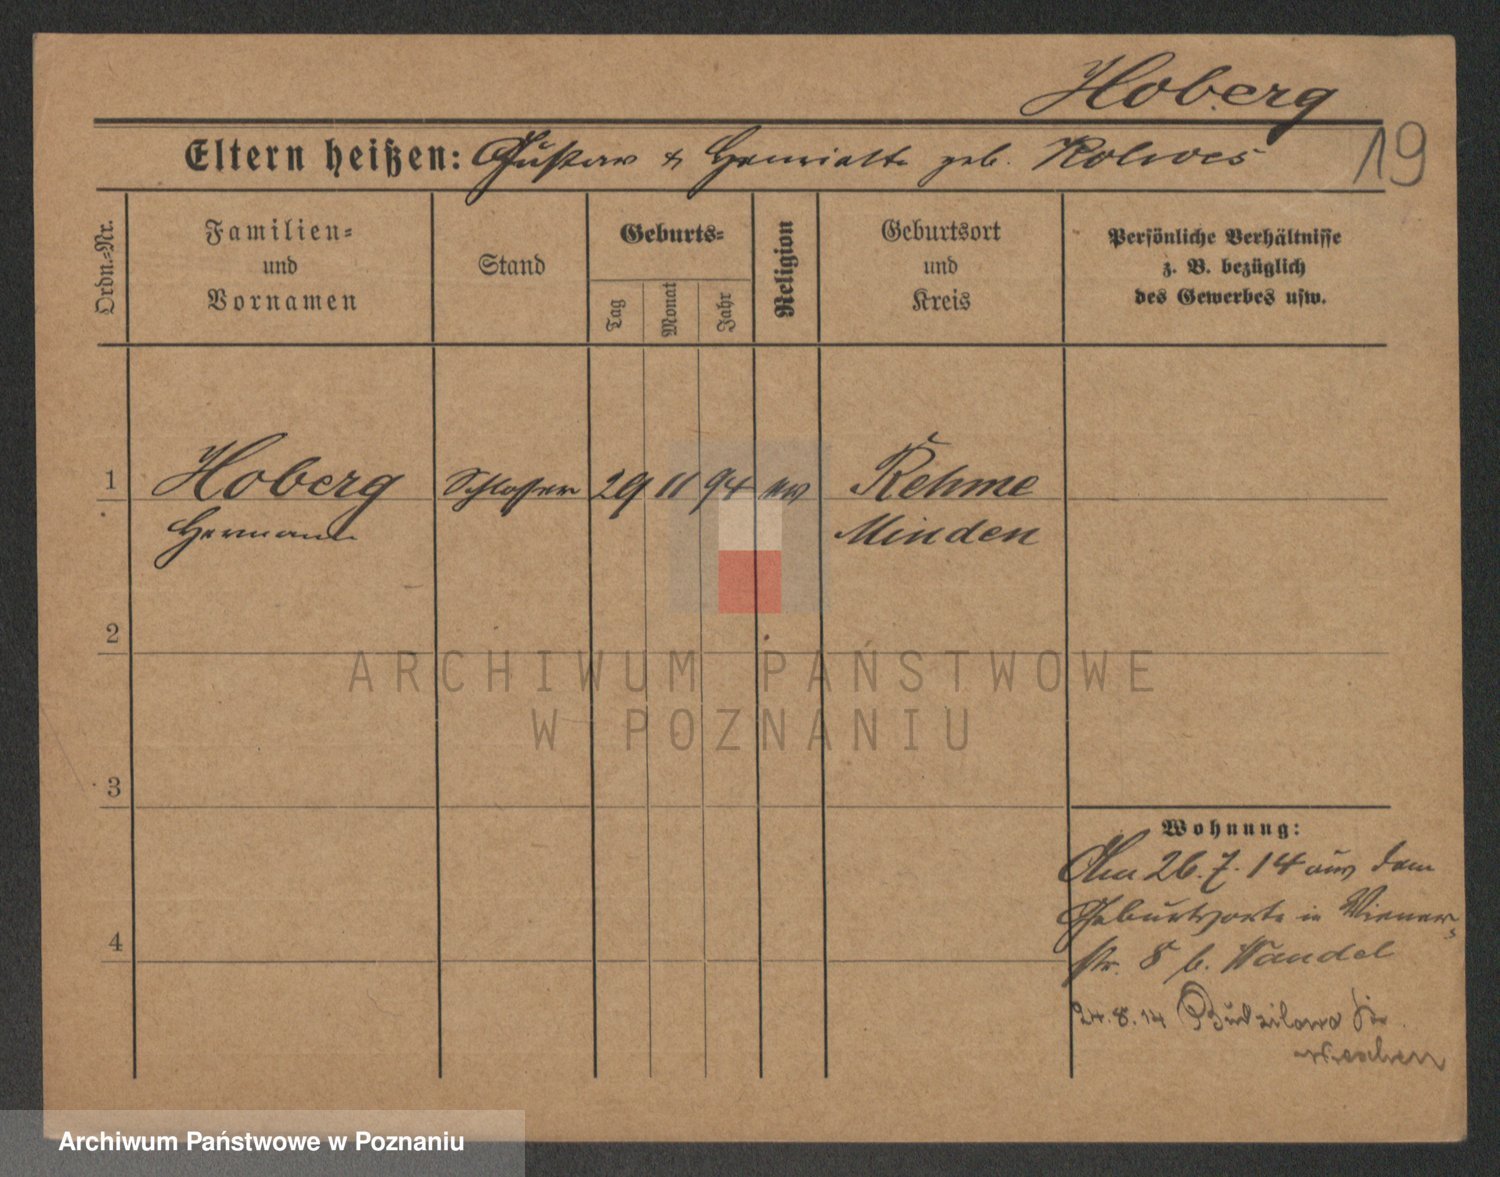 Hoberg
19
Eltern heißen: Gustav & Henriette geb. Kolwes
Ordn.=Nr.
Familien=
und
Vornamen
Stand
Geburts=
Tag
Monat
Jahr
Religion
Geburtsort
und
Kreis
Persönliche Verhältnisse
z. B. bezüglich
des Gewerbes usw.
1
Hoberg
Hermann
Schlosser
29
11
94
ev
Rehme
Minden
2
ARCHIWUM PAŃSTWOWE
W POZNANIU
3
Wohnung:
Am 26.7.14 aus dem
Geburtsorte in Wiener=
str. 8 b. Wandel
4
24.8.14 Budzilowo Kr.
Wreschen
Archiwum Państwowe w Poznaniu